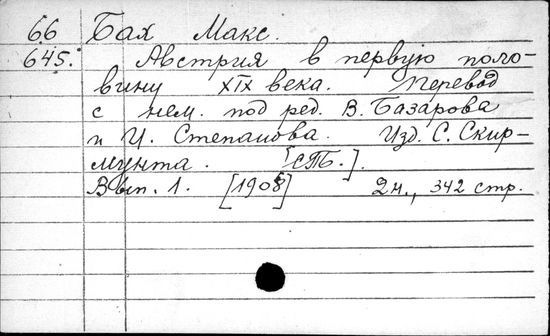 66 Бах Макс.
645. Австрия в первую поло-
вину XIX века. Перевод
с нем. под ред. В. Базарова
и И. Степанова. Изд. С. Скир-
мунта. [СПб.].
Вып. 1. [1908] 2 н., 342 стр.